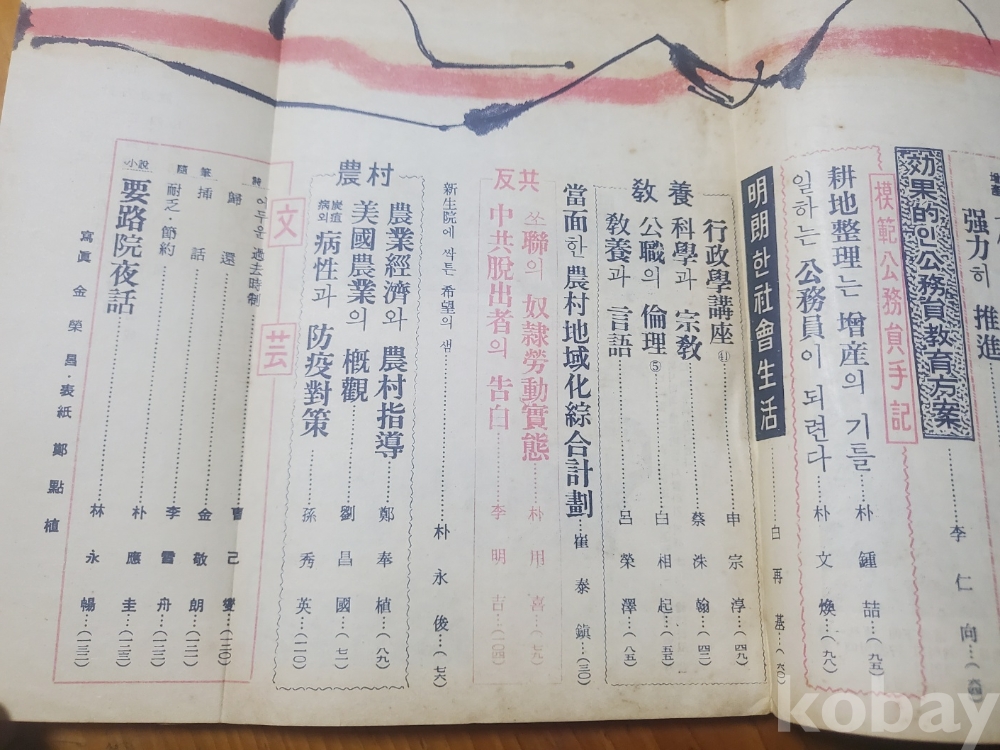 强力히 推進
李仁向…(六四)
効果的인 公務員教育方案
模範公務員手記
耕地整理는 增産의 기틀…朴鍾喆…(九五)
일하는 公務員이 되련다…朴文煥…(九八)
明朗한 社會生活…白再基…(六〇)
教養
行政學講座㊶…申宗淳…(四九)
科學과 宗敎…蔡洙翰…(四二)
公職의 倫理⑤…白相起…(五五)
敎養과 言語…呂榮澤…(八五)
當面한 農村地域化綜合計劃…崔泰鎭…(三〇)
反共
쏘聯의 奴隷勞動實態…朴用喜…(七九)
中共脫出者의 告白…李明吉…(一〇四)
新生院에 싹튼 希望의 샘…朴永俊…(七六)
農村
農業經濟와 農村指導…鄭奉植…(八九)
美國農業의 槪觀…劉昌國…(七一)
炭疽病의 病性과 防疫對策…孫秀英…(一一〇)
文芸
詩
어두운 過去時制
歸還…曹己燮…(一二〇)
隨筆
揷話…金敬朗…(一二二)
耐乏·節約…李雲舟
小說
要路院夜話…朴應圭
林永暢…(一三二)
寫眞 金榮昌·表紙 鄭點植
kobay